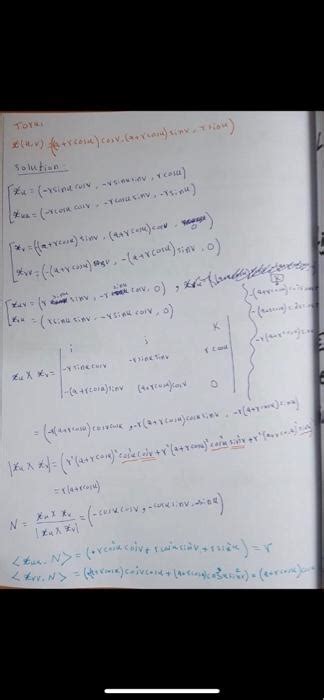 Torus
x(u,v) = ((a+rcosu)cosv, (a+rcosu)sinv, rsinu)
Solution:
x_u = (-rsinucosv, -rsinusinv, rcosu)
x_uu = (-rcosucosv, -rcosusinv, -rsinu)
x_v = (-(a+rcosu)sinv, (a+rcosu)cosv, 0)
x_vv = (-(a+rcosu)cosv, -(a+rcosu)sinv, 0)
x_uv = (r sinu sinv, -r sinu cosv, 0)
x_vu = (rsinusinv, -rsinucosv, 0)
i j k
x_u × x_v = -rsinucosv -rsinusinv rcosu
-(a+rcosu)sinv (a+rcosu)cosv 0
= (-r(a+rcosu)cosvcosu, -r(a+rcosu)cosusinv, -r(a+rcosu)sinu)
|x_u × x_v| = (r²(a+rcosu)²cos²ucos²v + r²(a+rcosu)²cos²usin²v + r²(a+rcosu)²sin²u
= r(a+rcosu)
N = x_u × x_v / |x_u × x_v| = (-cosucosv, -cosusinv, -sinu)
<x_uu, N> = (rcos²ucos²v + rcos²usin²v + rsin²u) = r
<x_vv, N> = ((a+rcosu)cos²vcosu + (a+rcosu)cosusin²v) = (a+rcosu)cosu